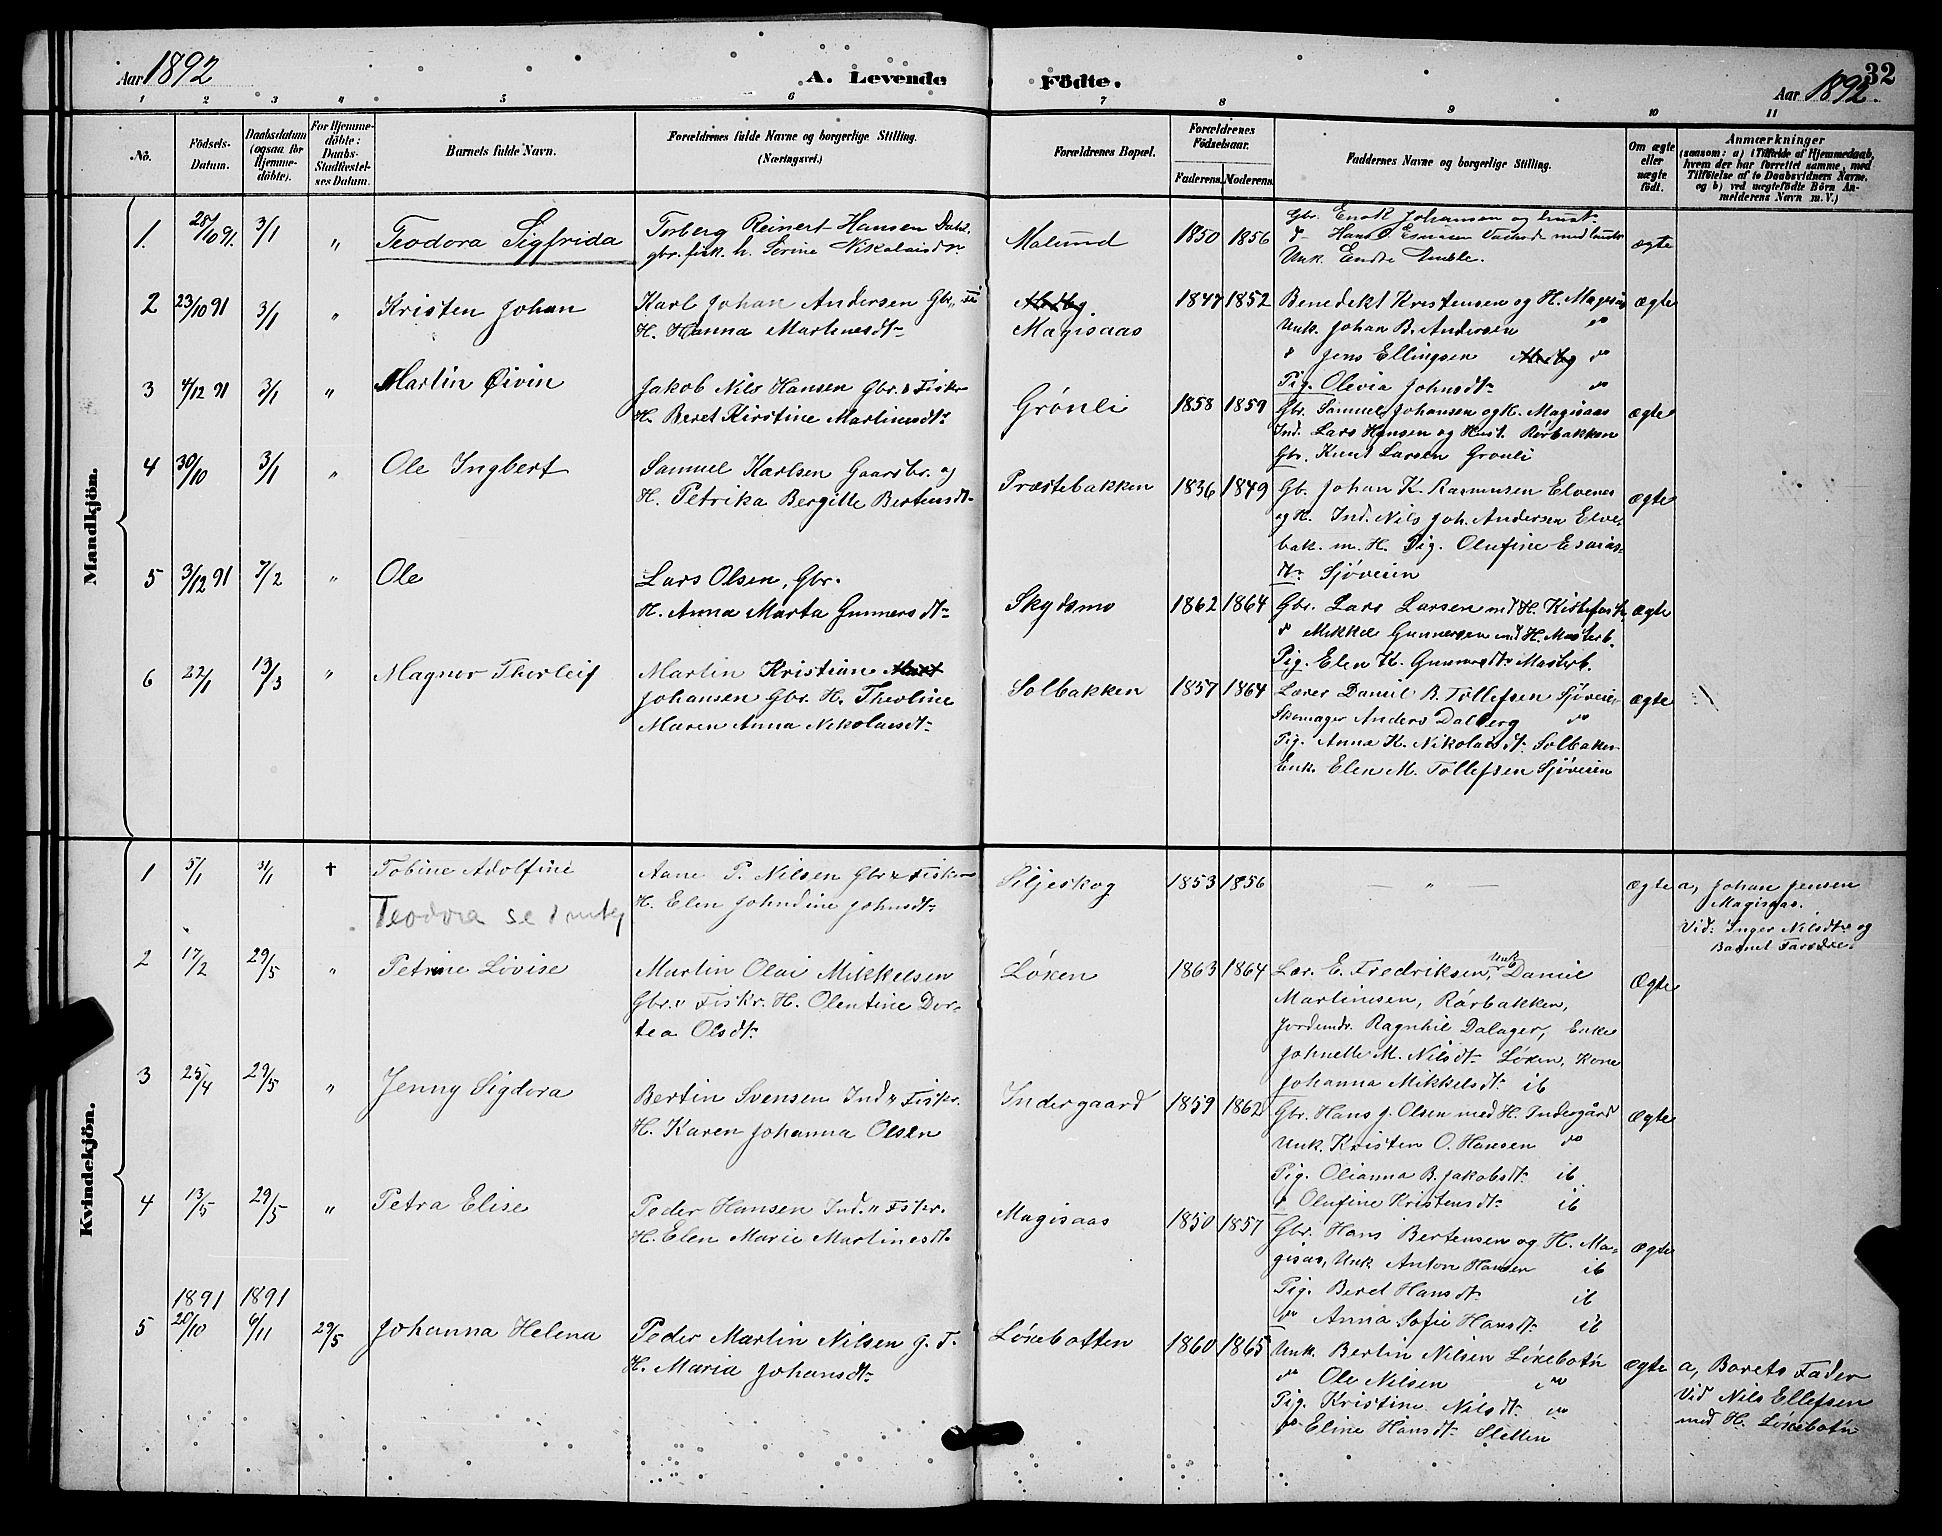 Aar 1892
A. Levende Födte.
32
Aar 1892.
1 2 3 4 5 6 7 8 9 10 11
No.
Födsels-Datum.
Daabsdatum (ogsaa for Hjemme-döbte).
For Hjemme-döbte: Daabs-Stadfæstel-ses Datum.
Barnets fulde Navn.
Forældrenes fulde Navne og borgerlige Stilling. (Næringsvei.)
Forældrenes Bopæl.
Forældrenes Födselsaar.
Faderens. Moderens.
Faddernes Navne og borgerlige Stilling.
Om ægte eller uægte födt.
Anmærkninger
(saasom: a) i Tilfælde af Hjemmedaab, hvem der har forrettet samme, med Tilföielse af to Daabsvidners Navne, og b) ved uægtefödte Börn An-melderens Navn m. V.)
Mandkjön.
1. 28/10 91. 3/1 " Teodora Sigfrida
Torberg Reinert Hansen
gbr. fisk. h. Serine Nikolaisdr.
Malund 1850 1856
Gbr. Enok Johansen og hust.
ægte
2 23/10 91 3/1 " Kristen Johan
Karl Johan Andersen Gbr. Fi
H. Hanna Martinesdt.
Magisaas 1847 1852
Benedekt Kristensen og H. Magisas
Unk. Johan B. Andersen do
do Jens Ellingsen do
Pig. Olevia Johnsdt. do
ægte
3 4/12 91 3/1 " Martin Øivin
Jakob Nils Hansen Gbr. & Fiskr
H. Beret Kirstine Martinesdt.
Grönli 1858 1859
Gbr. Samuel Johansen og K. Magisaas
Ind. Lars Hansen og Hust. Rørbakken
Gbr. Knut Larsen Grönli
ægte
4 30/10 3/1 " Ole Ingbert
Samuel Karlsen Gaardbr. og
H. Petrika Bergitte Bertensdt.
Præstebakken 1836 1849
Gb. Johan K. Rasmusen Elvenes
og H. Ind. Nils Joh. Andersen Elve-
bak. m. H. Pig. Olufine Esaias-
dt. Sjøveien
ægte
5 3/12 91 7/2 " Ole
Lars Olsen, Gbr.
H. Anna Marta Gunnersdt.
Skydsmo 1862 1864
Gbr. Lars Larsen med H. Kistefos
do Mikkel Gunnersen med H. Masterb.
Pig. Elen K. Gunnersdt. Masterb.
ægte
6 22/1 13/3 " Magnor Thorleif
Martin Kristian
Johansen Gbr. H. Theoline
Maren Anna Nikolaisdt.
Solbakken 1857 1864
Lærer Daniel B. Tollefsen Sjøveien
Skomager Anders Dalberg do
Pig. Anna K. Nikolaisdt. Solbaken
Enk. Elen M. Tollefsen Sjöveien
ægte
Kvindekjön.
1 5/1 3/1 † Tobine Adolfine
Teodora se 1
Aane P. Nilsen Gbr & Fisker
H. Elen Johndine Johnsdt.
Siljeskog 1853 1856
— " —
ægte
a, Johan Jensen
Magisaas.
Vid: Inger Nilsdt. og
2 17/2 29/5 " Petrine Lovise
Martin Olai Mikkelsen
Gbr. & Fiskr. H. Olentine Dor-
tea Olsdt.
Løken 1863 1864
Lær. E. Fredriksen, Unk. Daniel
Martinesen, Rørbakken,
Jordmdr. Ragnhil Dalager, Enke
Johnette M. Nilsdt. Løken, Kone
Johanna Mikkelsdt. ib
Ægte
3 25/4 29/5 " Jenny Sigdora
Bertin Svensen Ind & Fiskr.
H. Karen Johanna Olsen
Indergaard 1859 1862
Gbr. Hans J. Olsen med H. Indergård
Unk. Kristen O. Hansen do
Pig. Olianna B. Jakobsdt. ib.
do Olufine Kristensdt. ib
Ægte
4 13/5 29/5 " Petra Elise
Peder Hansen Ind. & Fiskr.
H. Elen Marie Martinesdt.
Magisaas 1850 1857
Gbr. Hans Bertensen og H. Ma-
gisas, Unk Anton Hansen ib
Pig. Beret Hansdt. ib
do Anna Sofie Hansdt. ib
Ægte
1891 1891
5 20/10 6/11 29/5 Johanna Helena
Peder Martin Nilsen g. F.
H. Maria Johansdt.
Løksebotten 1860 1865
Unk. Bertin Nilsen Løksebotn
do Ole Nilsen do
Pig. Kristine Nilsdt. do
do Eline Hansdt. Sletten
Ægte
a, Barets Fader
Vid Nils Ellefsen
med H. Løksebotn